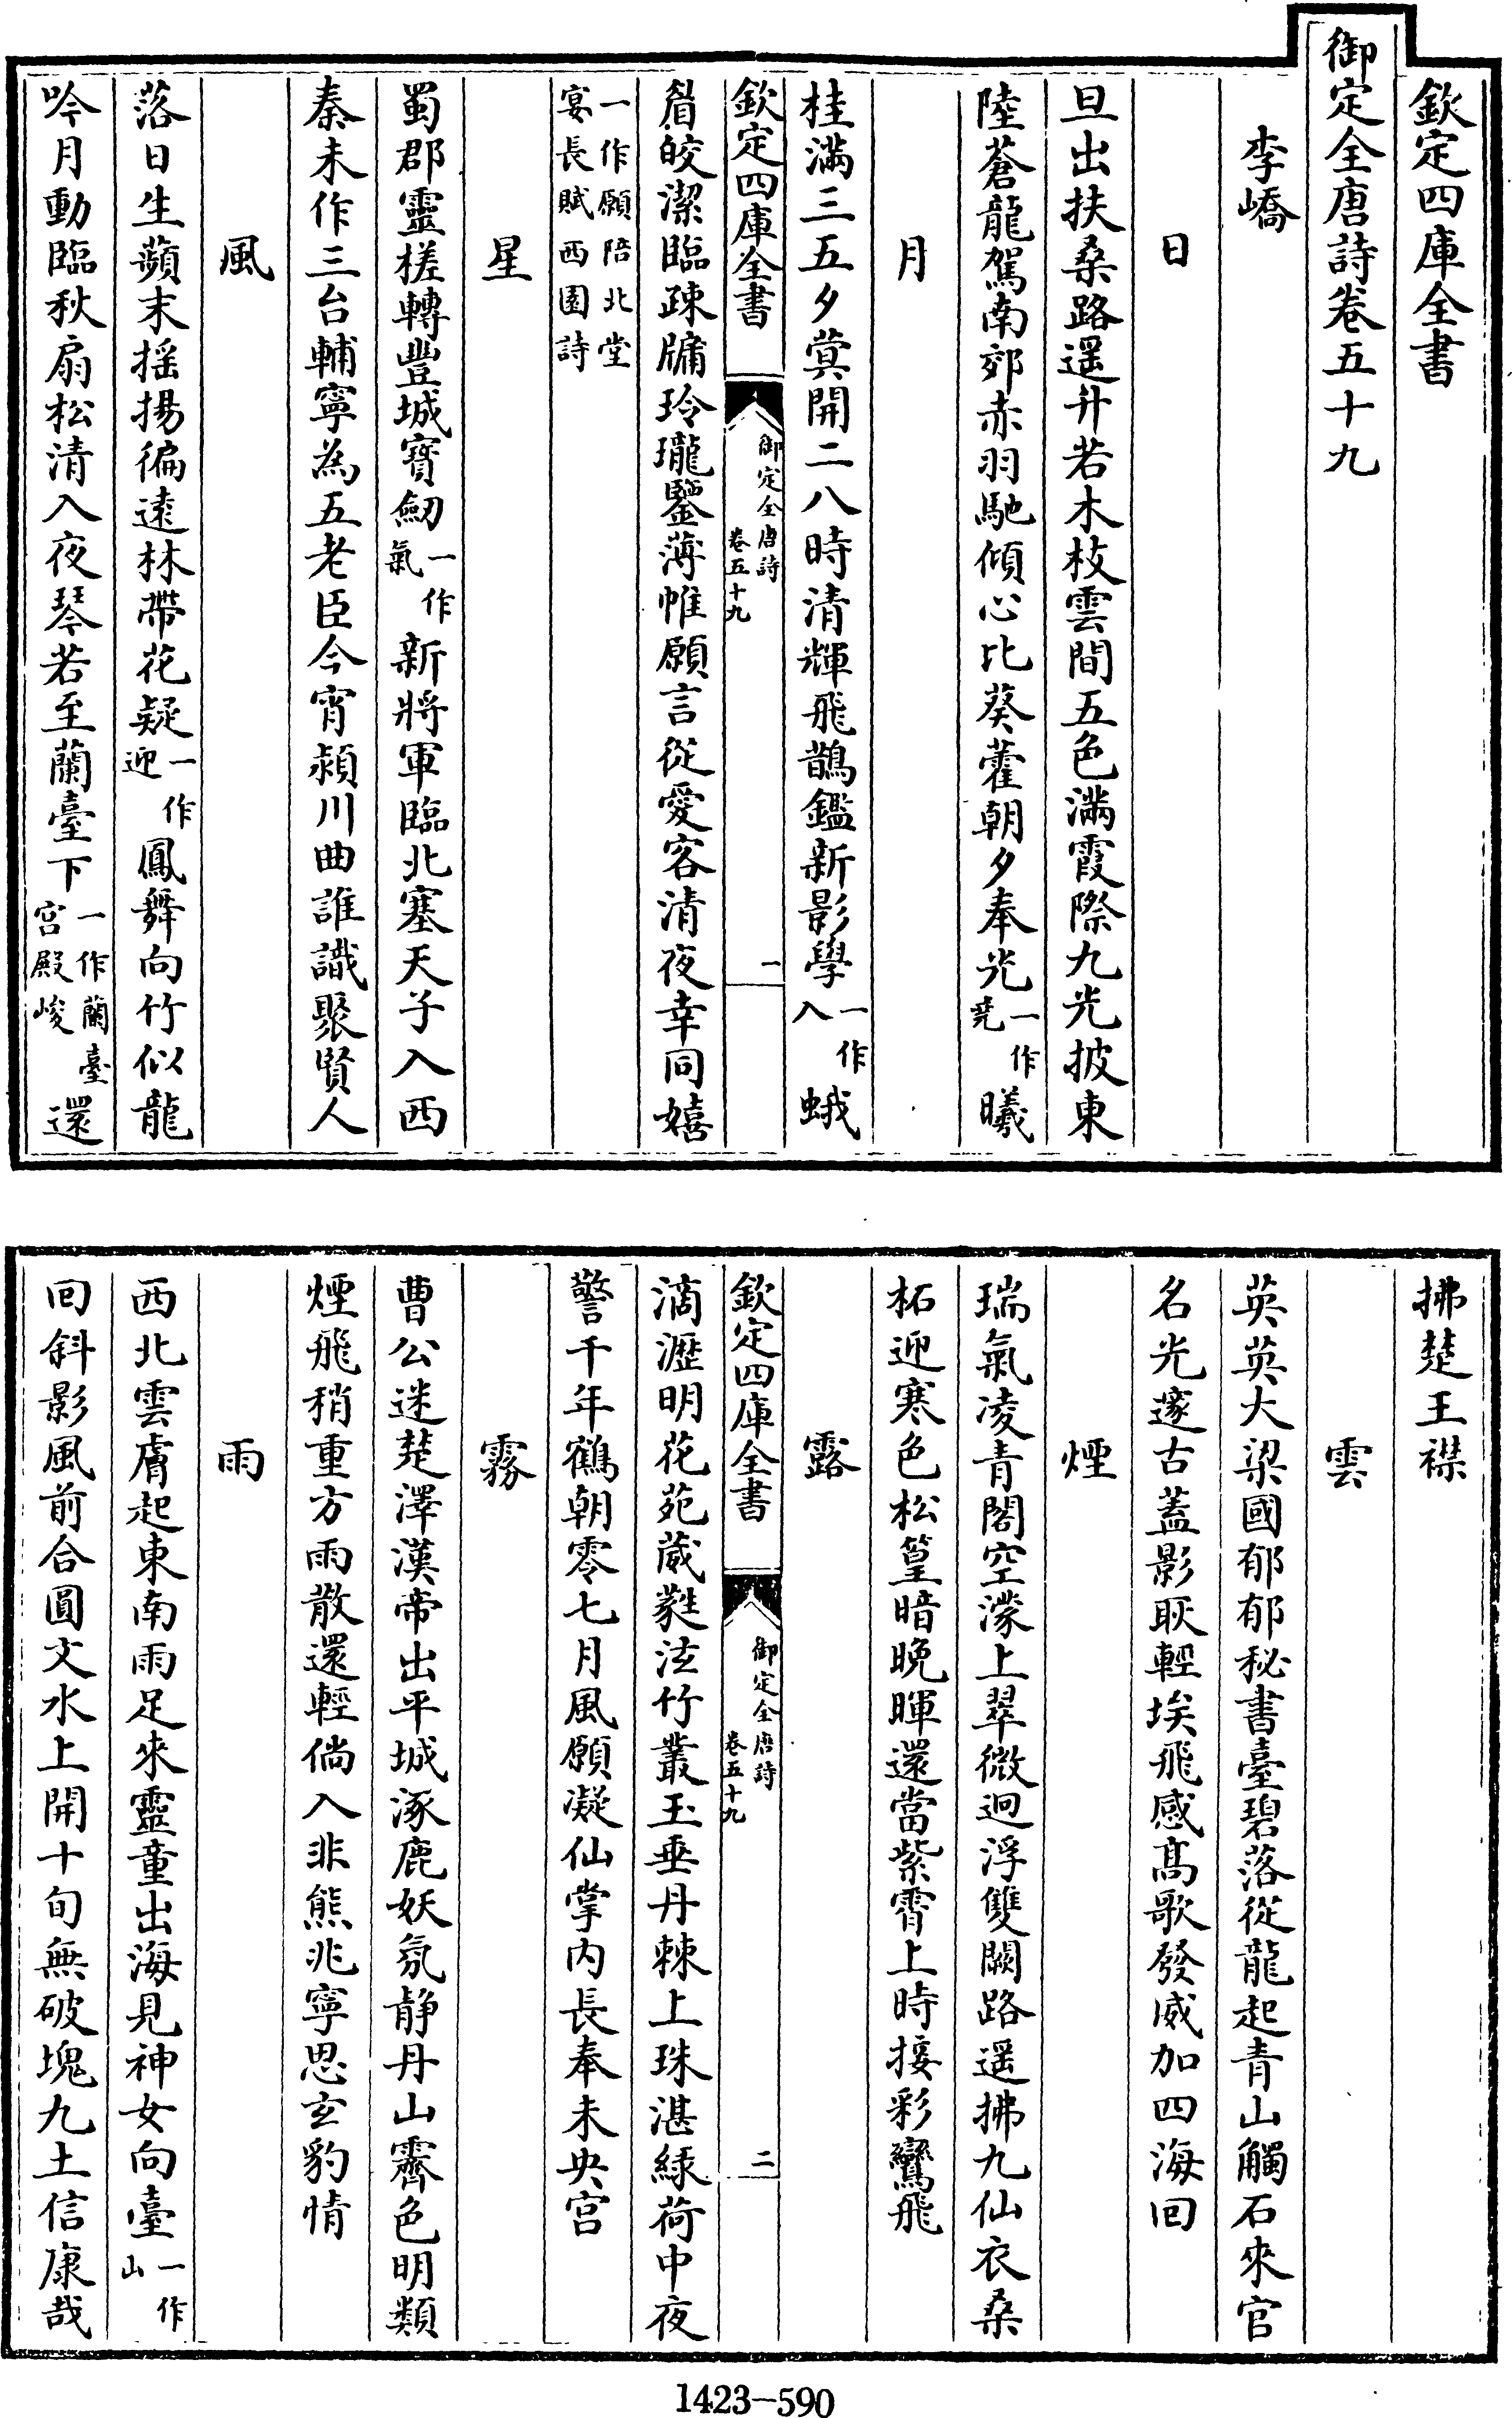 欽定四庫全書
御定全唐詩卷五十九
李嶠
日
旦出扶桑路遥升若木枝雲間五色滿霞際九光披東
陸蒼龍駕南郊赤羽馳傾心比葵藿朝夕奉光一作堯曦
月
桂滿三五夕蓂開二八時清輝飛鵲鑑新影學一作入蛾
欽定四庫全書
御定全唐詩
卷五十九
一
眉皎潔臨疎牖玲瓏鑒薄帷願言從愛客清夜幸同嬉
一作願陪北堂宴長賦西園詩
星
蜀郡靈槎轉豐城寶劒一作氣新將軍臨北塞天子入西
秦未作三台輔寧為五老臣今宵潁川曲誰識聚賢人
風
落日生蘋末揺揚徧遠林帶花疑一作迎鳳舞向竹似龍
吟月動臨秋扇松清入夜琴若至蘭臺下一作蘭臺宫殿峻還
拂楚王襟
雲
英英大梁國郁郁秘書臺碧落從龍起青山觸石來官
名光邃古蓋影耿輕埃飛感髙歌發威加四海回
煙
瑞氣凌青閣空濛上翠微迥浮雙闕路遥拂九仙衣桑
柘迎寒色松篁暗晩暉還當紫霄上時接彩鸞飛
露
欽定四庫全書
御定全唐詩
卷五十九
二
滴瀝明花苑葳蕤泫竹叢玉垂丹棘上珠湛緑荷中夜
警千年鶴朝零七月風願凝仙掌内長奉未央宫
霧
曹公迷楚澤漢帝出平城涿鹿妖氛静丹山霽色明類
煙飛稍重方雨散還輕倘入非熊兆寧思玄豹情
雨
西北雲膚起東南雨足來靈童出海見神女向臺一作山
回斜影風前合圓文水上開十旬無破塊九土信康哉
1423-590